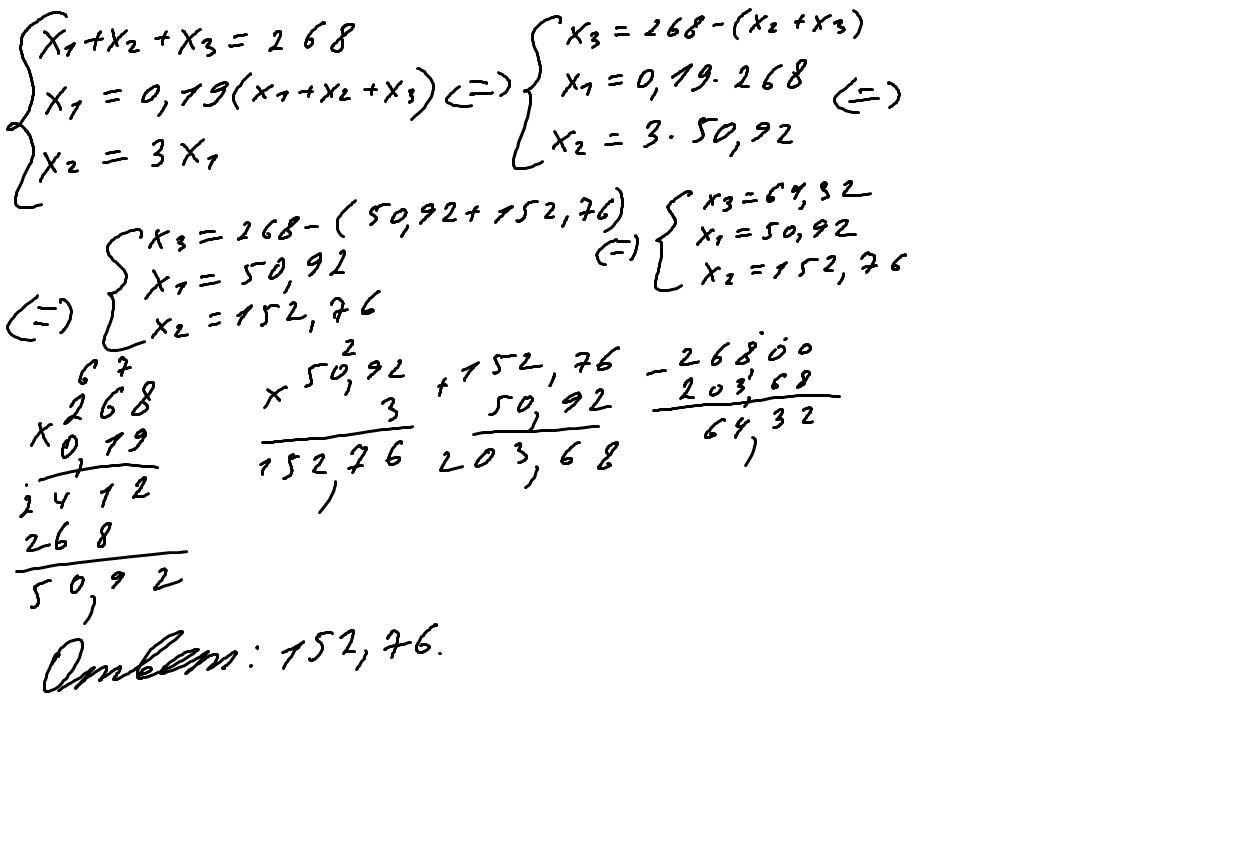 x₁+x₂+x₃=268
x₁=0,19(x₁+x₂+x₃) <=>
x₂=3x₁
x₃=268-(x₂+x₃)
x₁=0,19·268 <=>
x₂=3·50,92
<=> x₃=268-(50,92+152,76) <=>
x₁=50,92
x₂=152,76
x₃=64,32
x₁=50,92
x₂=152,76
67
×268
0,19
2412
268
50,92
2
×50,92
3
152,76
+152,76
50,92
203,68
-268,00
203,68
64,32
Ответ: 152,76.